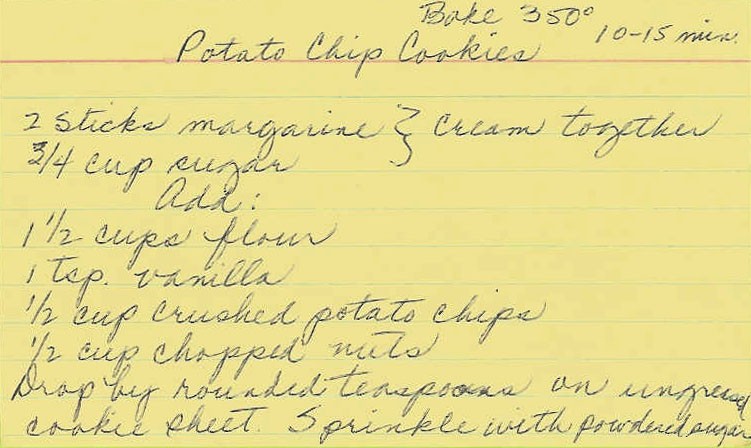 Bake 350° 10-15 min.
Potato Chip Cookies
2 sticks margarine } cream together
3/4 cup sugar
Add:
1 1/2 cups flour
1 tsp. vanilla
1/2 cup crushed potato chips
1/2 cup chopped nuts
Drop by rounded teaspoons on ungreased
cookie sheet. Sprinkle with powdered sugar